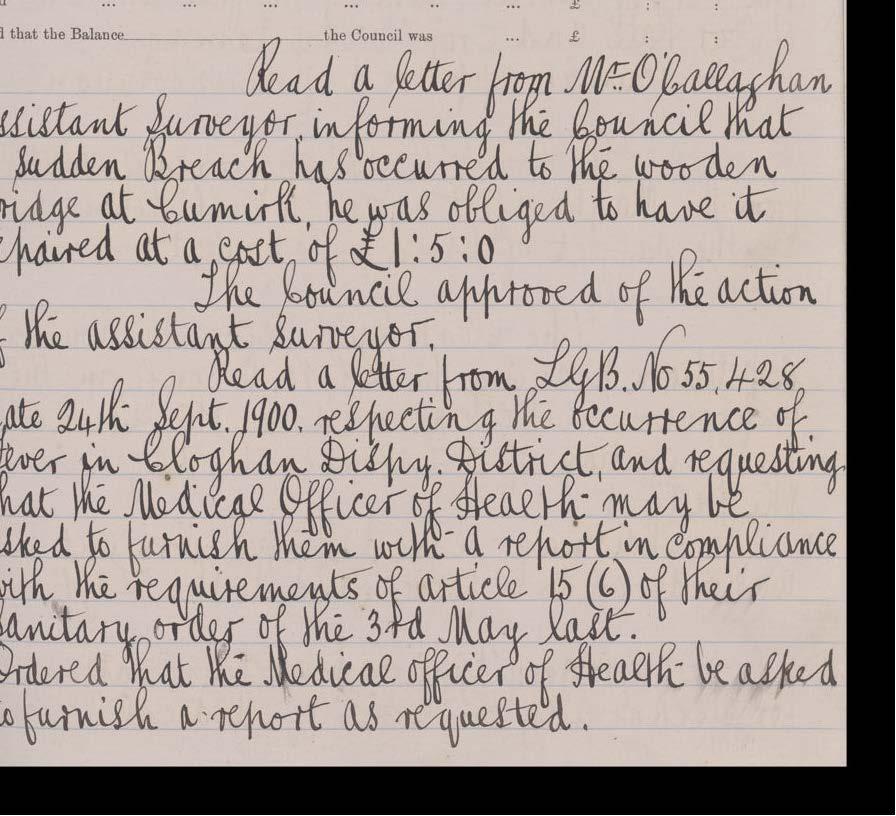 ... ... ... .. ... £ : :
d that the Balance the Council was ... £ : :
Read a letter from Mr. O'Callaghan
ssistant Surveyor, informing the Council that
sudden Breach has occurred to the wooden
ridge at Cumirk, he was obliged to have it
epaired at a cost of £1:5:0
The Council approved of the action
f the assistant surveyor.
Read a letter from L.G.B. No 55,428
ate 24th Sept. 1900. respecting the occurrence of
fever in Cloghan Dispy. District, and requesting
hat the Medical Officer of Health may be
sked to furnish them with a report in compliance
with the requirements of article 15 (6) of their
sanitary order of the 3rd May last.
Ordered that the Medical officer of Health be asked
to furnish a report as requested.